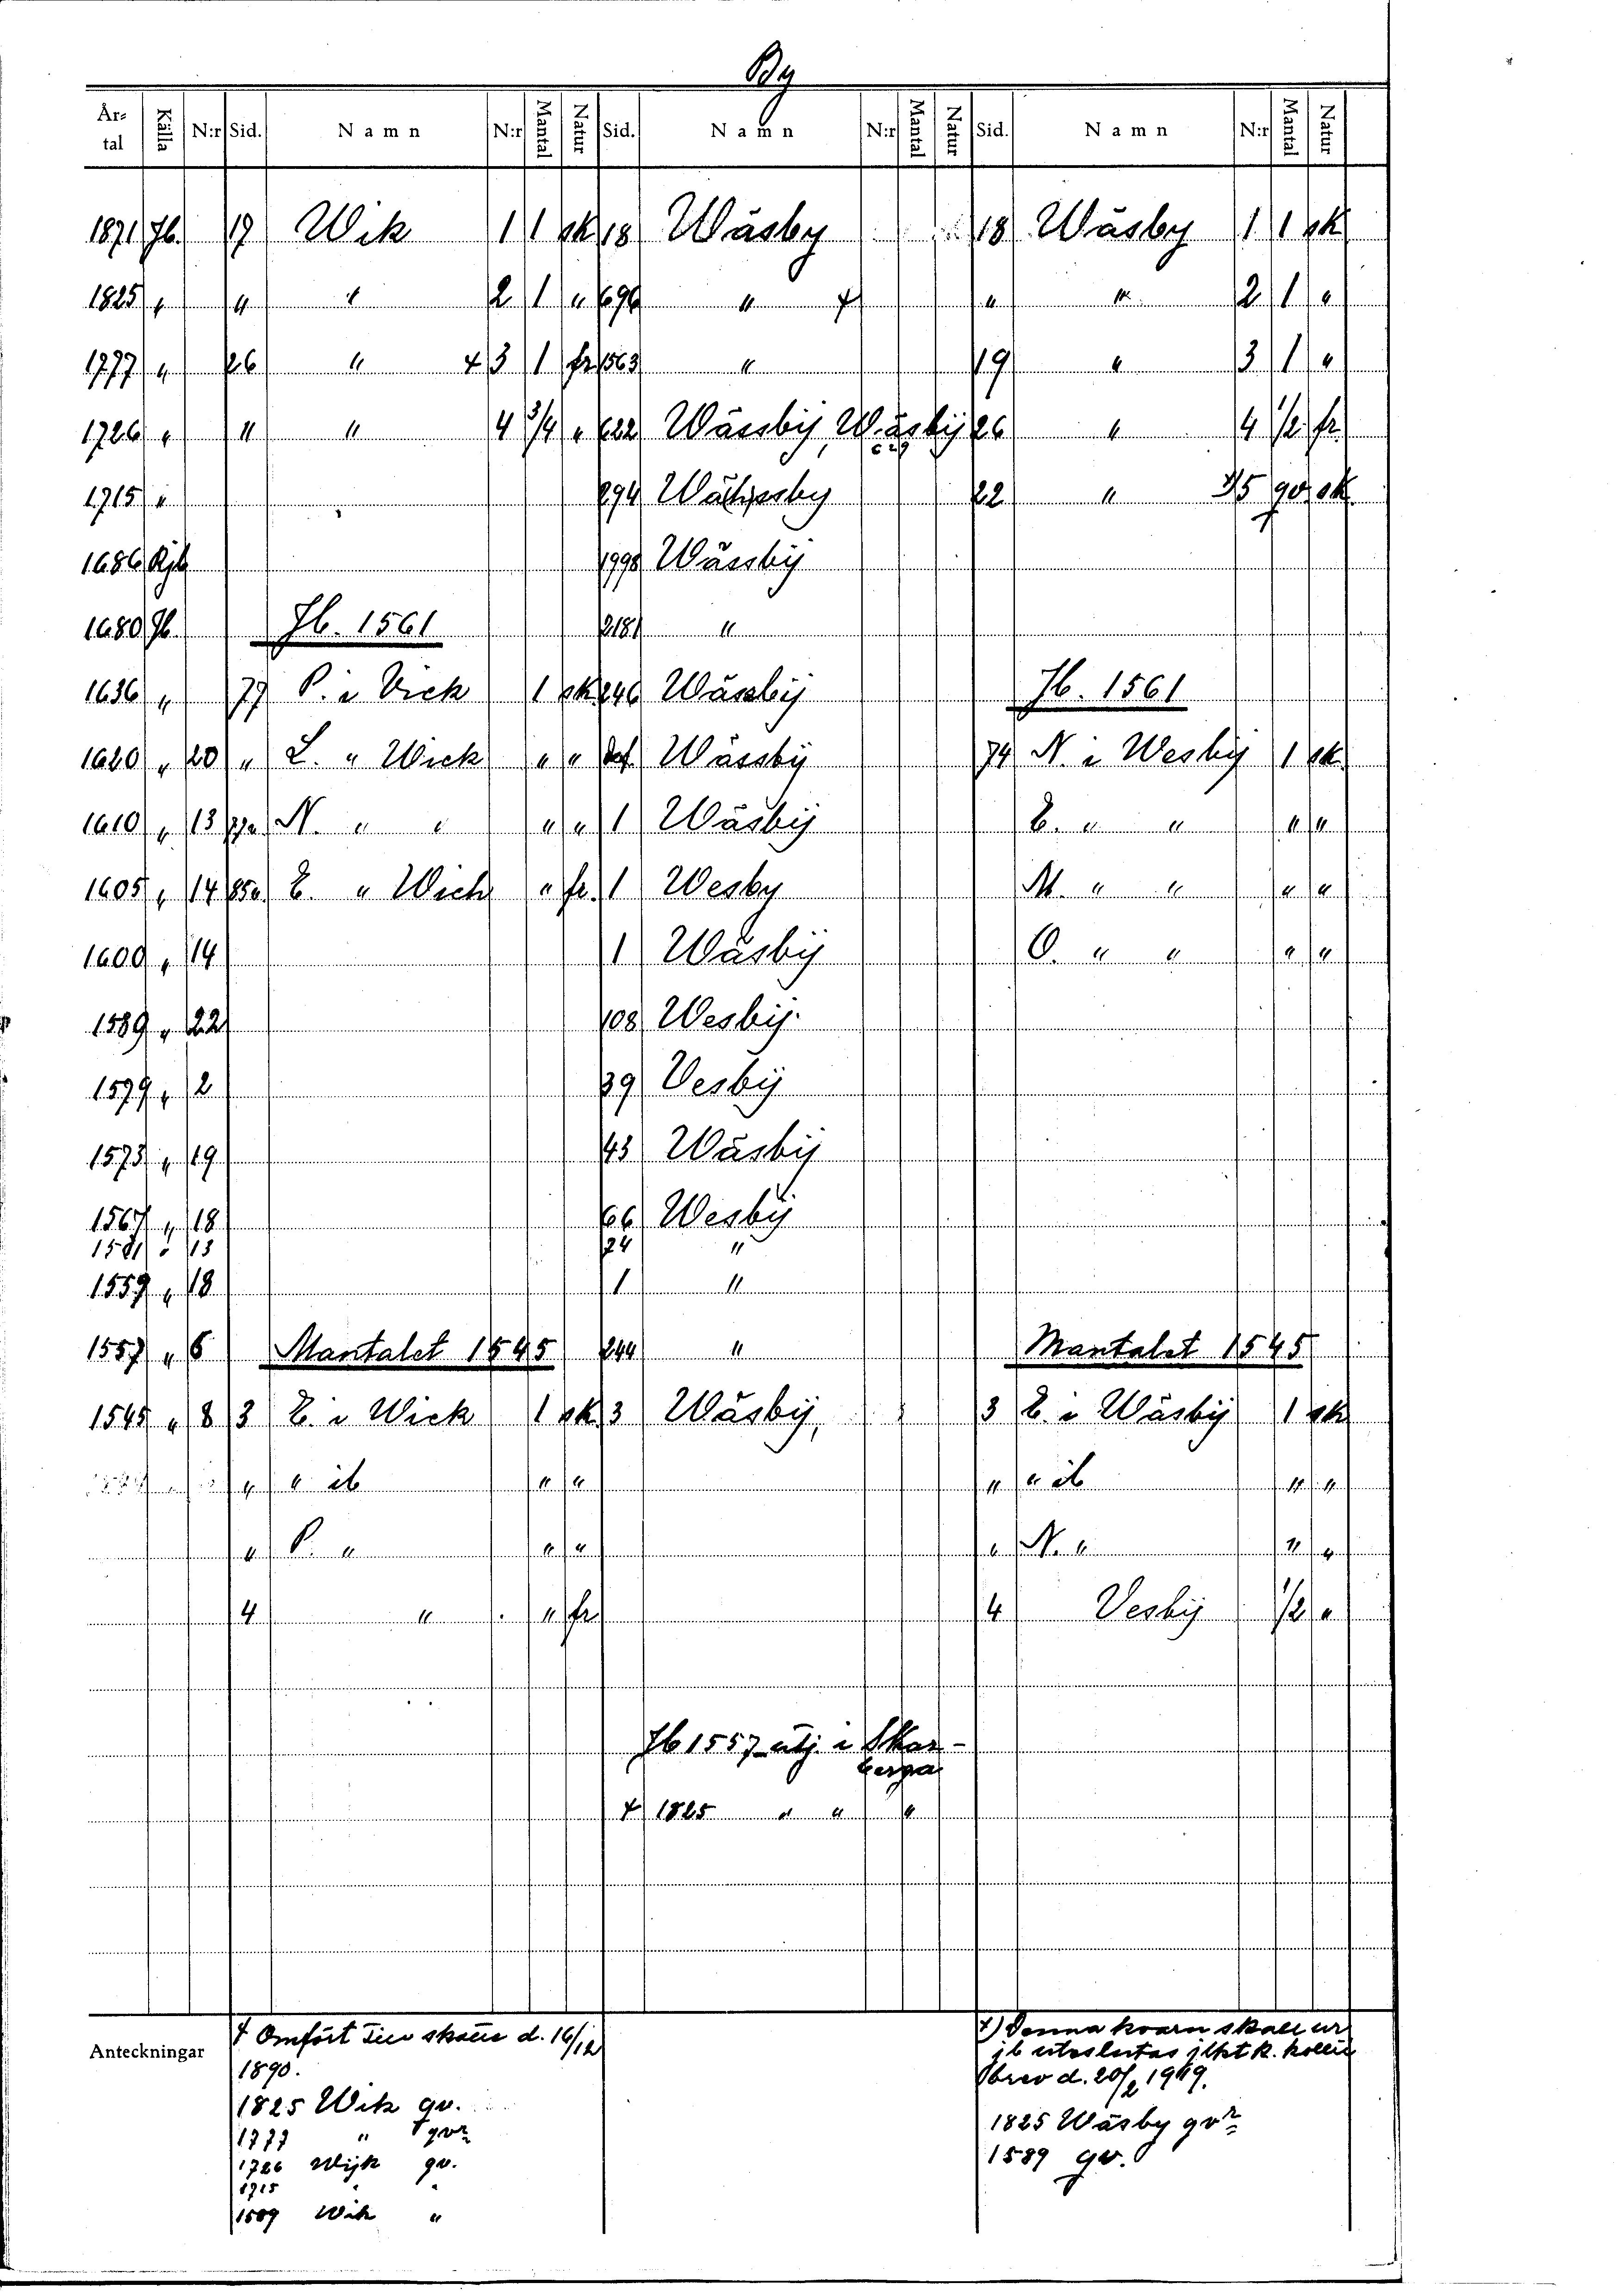 By
År-tal Källa N:r Sid. Namn N:r Mantal Natur Sid. Namn N:r Mantal Natur Sid. Namn N:r Mantal Natur
1871 Jb. 17 Wik 1 1 sk 18 Wäsby 18 Wäsby 1 1 sk
1825 " " " 2 1 " 696 " + " " 2 1 "
1777 " 26 " + 3 1 fr 1563 " 19 " 3 1 "
1726 " " " 4 3/4 " 622 Wässbij, Wäsbij 26 " 4 1/2 fr.
629
1715 " 294 Wä(h)ssby 22 " 5 qv. sk.
1686 Rjb 1998 Wässbij
1680 Jb. Jb. 1561 2181 "
1636 " 77 P. i Vick 1 sk 246 Wässbij Jb. 1561
1620 " 20 " L. " Wick " " def Wässbij 74 N. i Wesbij 1 sk.
1610 " 13 77a N. " " " " 1 Wäsbij E. " " " "
1605 " 14 85a. E. " Wich " fr. 1 Wesby M. " " " "
1600 " 14 1 Wäsbij O. " " " "
1589 " 22 108 Wesbij.
1579 " 2 39 Vesbij
1573 " 19 43 Wäsbij
1567 " 18 66 Wesbij
1561 " 13 74 "
1559 " 18 1 "
1557 " 6 Mantalet 1545 244 " Mantalet 1545
1545 " 8 3 E. i Wick 1 sk. 3 Wäsbij, 3 E. i Wäsbij 1 sk
" " ib " " " " ib " "
" P. " " " " N. " " "
4 " " fr 4 Vesbij 1/2 "
Jb 1557 utj. i Skar-
berga
+ 1825 " " "
Anteckningar
+ Omfört till skatte d. 16/12
1890.
1825 Wik qv.
1777 " qvr
1726 Wijk qv.
1715 " "
1589 Wik "
+) Denna kvarn skall ur
jb uteslutas jlkt k. kollii
brev d. 20/2 1919.
1825 Wäsby qvr
1589 qv.